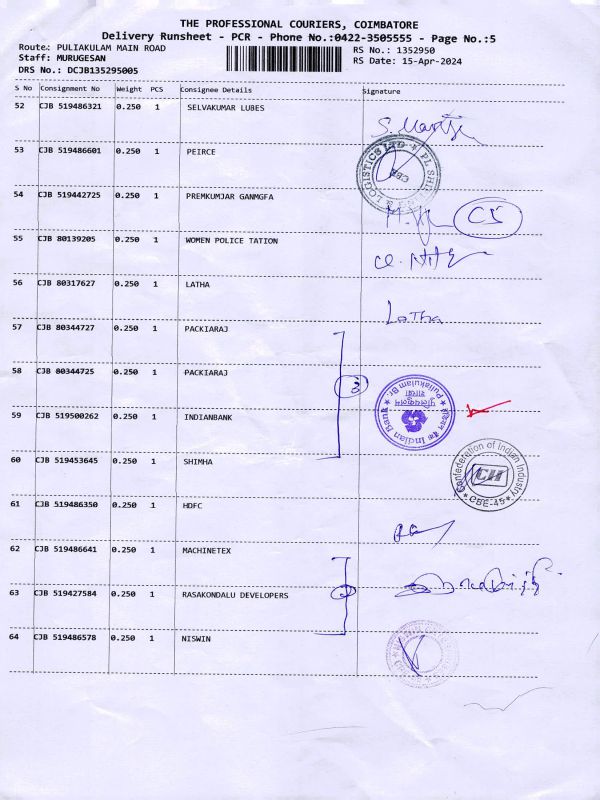 THE PROFESSIONAL COURIERS, COIMBATORE
Delivery Runsheet - PCR - Phone No.:0422-3505555 - Page No.:5
Route: PULIAKULAM MAIN ROAD RS No.: 1352950
Staff: MURUGESAN RS Date: 15-Apr-2024
DRS No.: DCJB135295005
S No Consignment No Weight PCS Consignee Details Signature
52 CJB 519486321 0.250 1 SELVAKUMAR LUBES
53 CJB 519486601 0.250 1 PEIRCE
54 CJB 519442725 0.250 1 PREMKUMJAR GANMGFA
C5
55 CJB 80139205 0.250 1 WOMEN POLICE TATION
56 CJB 80317627 0.250 1 LATHA
Latha
57 CJB 80344727 0.250 1 PACKIARAJ
58 CJB 80344725 0.250 1 PACKIARAJ
3
59 CJB 519500262 0.250 1 INDIANBANK
Indian Bank
Puliakulam Br.
60 CJB 519453645 0.250 1 SHIMHA
Confederation of Indian Industry
CII
CBE-45
61 CJB 519486350 0.250 1 HDFC
62 CJB 519486641 0.250 1 MACHINETEX
63 CJB 519427584 0.250 1 RASAKONDALU DEVELOPERS
64 CJB 519486578 0.250 1 NISWIN